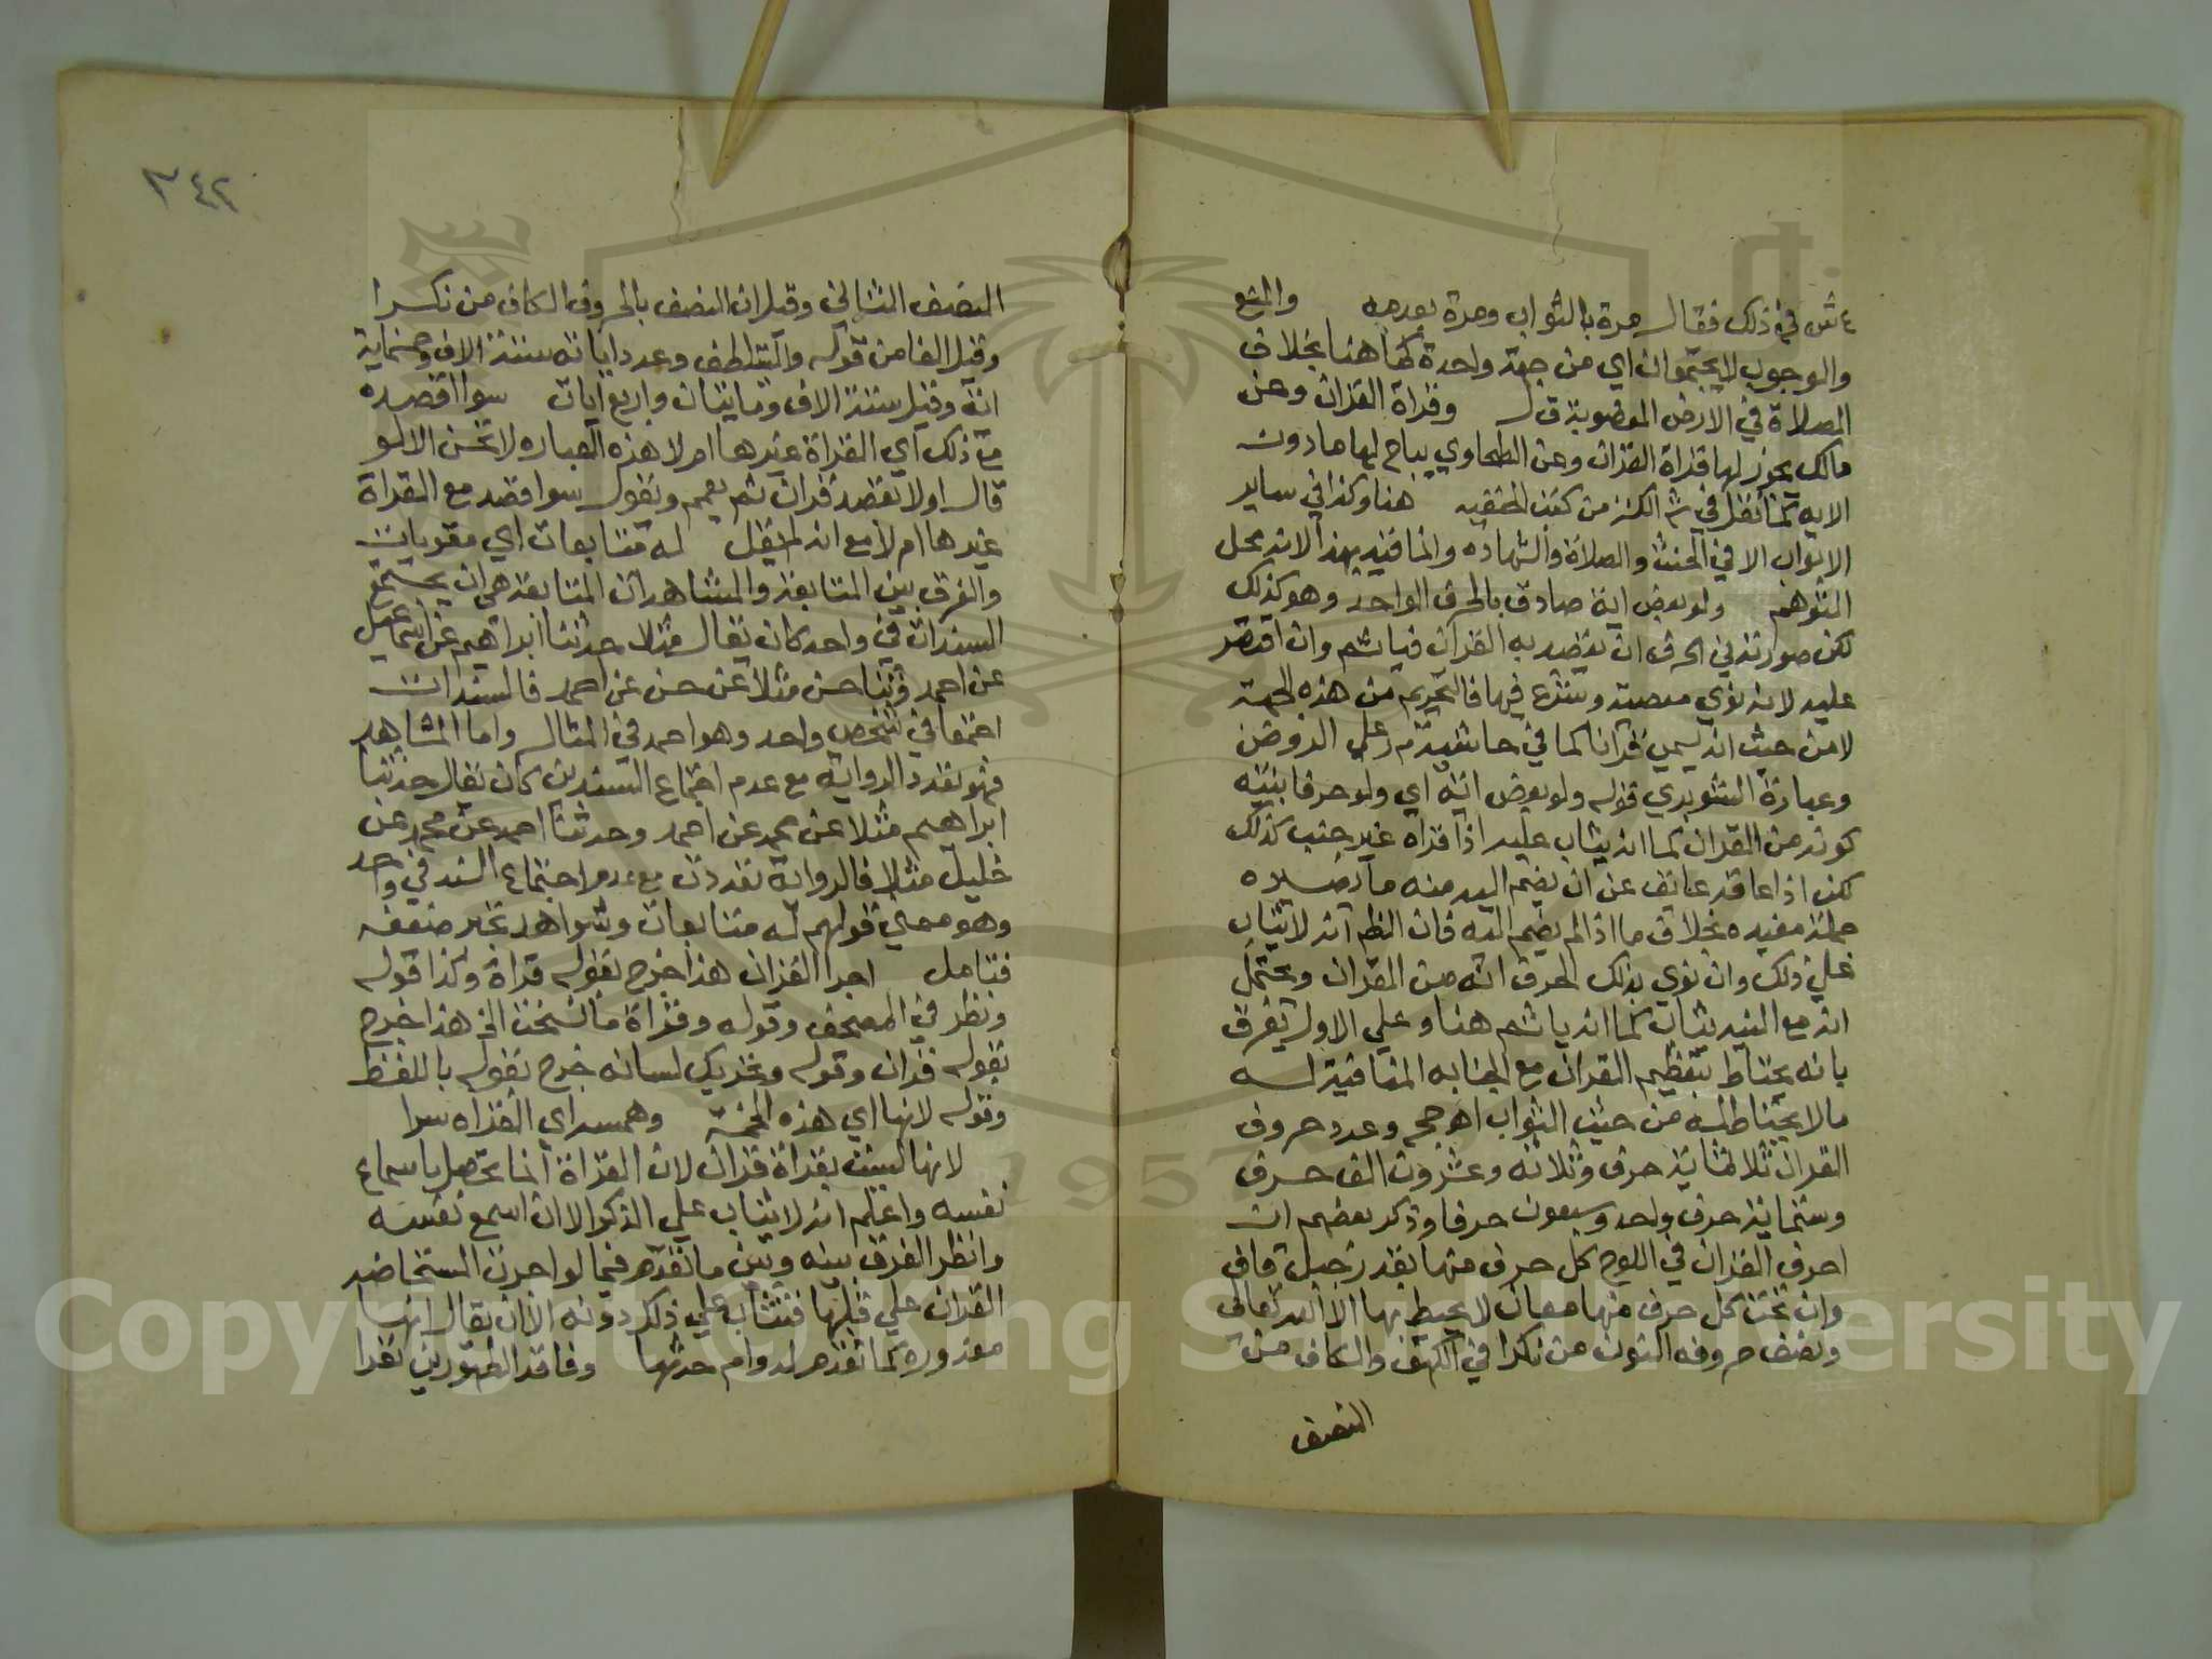 ع ش في ذلك فقال مرة بالثواب ومرة بعدمه والمنع
والوجوب لا يجتمعان اي من جهة واحدة كما هنا بخلاف
الصلاة في الارض المغصوبة ق ل وقراة القران وعن
مالك يجوز لها قراة القران وعن الطحاوي يباح لها ما دون
الاية كما نقل في شرح الكنز من كتب الحنفية هنا وكذا في ساير
الابواب الا في الحنث والصلاة والشهاده وانما قيد بهذا لانه محل
التوهم ولو بعض اية صادق بالحرف الواحد وهو كذلك
لكن صورته في الحرف ان يقصد به القران فياثم وان اقتصر
عليه لانه نوي معصية وشرع فيها فالتحريم من هذه الجهة
لا من حيث انه يسمي قرانا كما في حاشية م ر علي الروض
وعبارة الشوبري قوله ولو بعض اية اي ولو حرفا بنية
كونه من القران كما انه يثاب عليه اذا قراه غير جنب كذلك
لكن اذا عاقه عايق عن ان يضم اليه منه ما يصيره
جملة مفيده بخلاف ما اذا لم يضم اليه فان الظم انه لا يثاب
علي ذلك وان نوي بذلك الحرف انه من القران ويحتمل
انه مع النية يثاب كما انه ياثم هنا وعلي الاول يفرق
بانه يحتاط بتعظيم القران مع الجنابه المنافية له
ما لا يحتاط له من حيث الثواب اهـ ج م وعدد حروف
القران ثلاثماية حرف وثلاثه وعشرون الف حرف
وستماية حرف واحد وسبعون حرفا وذكر بعضهم ان
احرف القران في اللوح كل حرف منها بقدر جبل قاف
وان تحت كل حرف منها معان لا يحيط بها الا الله تعالى
ونصف حروفه النون من نكرا في الكهف والكاف من
النصف
٣٤٢
النصف الثاني وقيل ان النصف بالحروف الكاف من نكرا
وقيل الفا من قوله وليتلطف وعدد اياته ستة الاف وخمماية
اية وقيل ستة الاف ومايتان واربع ايات سوا اقصده
مع ذلك اي القراة غيرها ام لا هذه العباره لا تحسن الا لو
قال اولا بقصد قران ثم يعمم ويقول سوا قصد مع القراة
غيرها ام لا مع انه لم يقل له متابعات اي مقويات
والفرق بين المتابعة والمشاهد ان المتابعة هي ان يجتمع
السندان في واحد كان يقال مثلا حدثنا ابراهيم عن اسماعيل
عن احمد وثنا حسن مثلا عن حسن عن احمد فالسندان
اجتمعا في شخص واحد وهو احمد في المثال واما المشاهد
فهو تعدد الرواية مع عدم اجتماع السندين كان يقال حدثنا
ابراهيم مثلا عن محمد عن احمد وحدثنا احمد عن محمد عن
خليل مثلا فالرواية تعددت مع عدم اجتماع السند في واحد
وهو معني قولهم له متابعات وشواهد تجبر ضعفه
فتامل اجرا القران هذا خرج بقوله قراة وكذا قوله
ونظر في المصحف وقوله وقراة ما نسخت الخ هذا خرج
بقوله قران وقوله وتحريك لسانه خرج بقوله باللفظ
وقوله لانها اي هذه الخمسة وهمسه اي القراه سرا
لانها ليست بقراة قران لان القراة انما تحصل باسماع
نفسه واعلم انه لا يثاب علي الذكر الا ان اسمع نفسه
وانظر الفرق بينه وبين ما تقدم فيما لو اجرت المستحاضه
القران علي قلبها فتثاب علي ذلك دونه الا ان يقال انها
معذوره كما تقدم لدوام حدثها وفاقد الطهورين تقرا